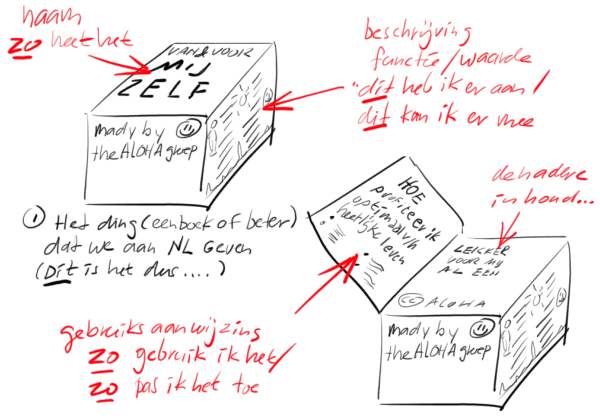 naam
zo heet het
VAN & VOOR
MIJ
ZELF
made by
the ALOHA groep
beschrijving
functie/waarde
"dit heb ik er aan/
dit kan ik er mee
① Het ding (een boek of beter)
dat we aan NL Geven
(Dit is het dus.....)
HOE
profiteer ik
optimaal v/h
heerlijke leven
de nadere
inhoud...
LEKKER
VOOR MIJ
AL EEN
cc ALOHA
made by
the ALOHA groep
gebruiks aanwijzing
zo gebruik ik het/
zo pas ik het toe